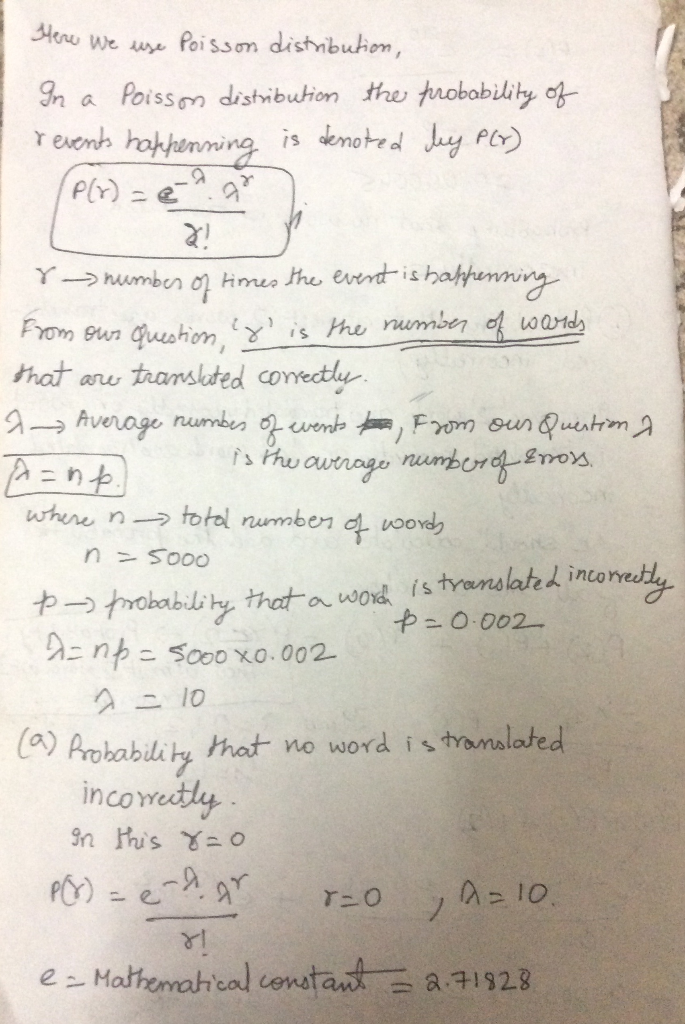 Here we use Poisson distribution,
In a Poisson distribution the probability of
r events happenning is denoted by P(r)
P(r) = e^-λ . λ^r
r!
r → number of times the event is happenning
From our Question, 'r' is the number of words
that are translated correctly.
λ → Average number of events , From our Question λ
is the average number of Errors.
λ = np.
where n → total number of words
n = 5000
p → probability that a word is translated incorrectly
p = 0.002
λ = np = 5000 x 0.002
λ = 10
(a) Probability that no word is translated
incorrectly.
In this r = 0
P(r) = e^-λ . λ^r r = 0 , λ = 10.
r!
e = Mathematical constant = 2.71828